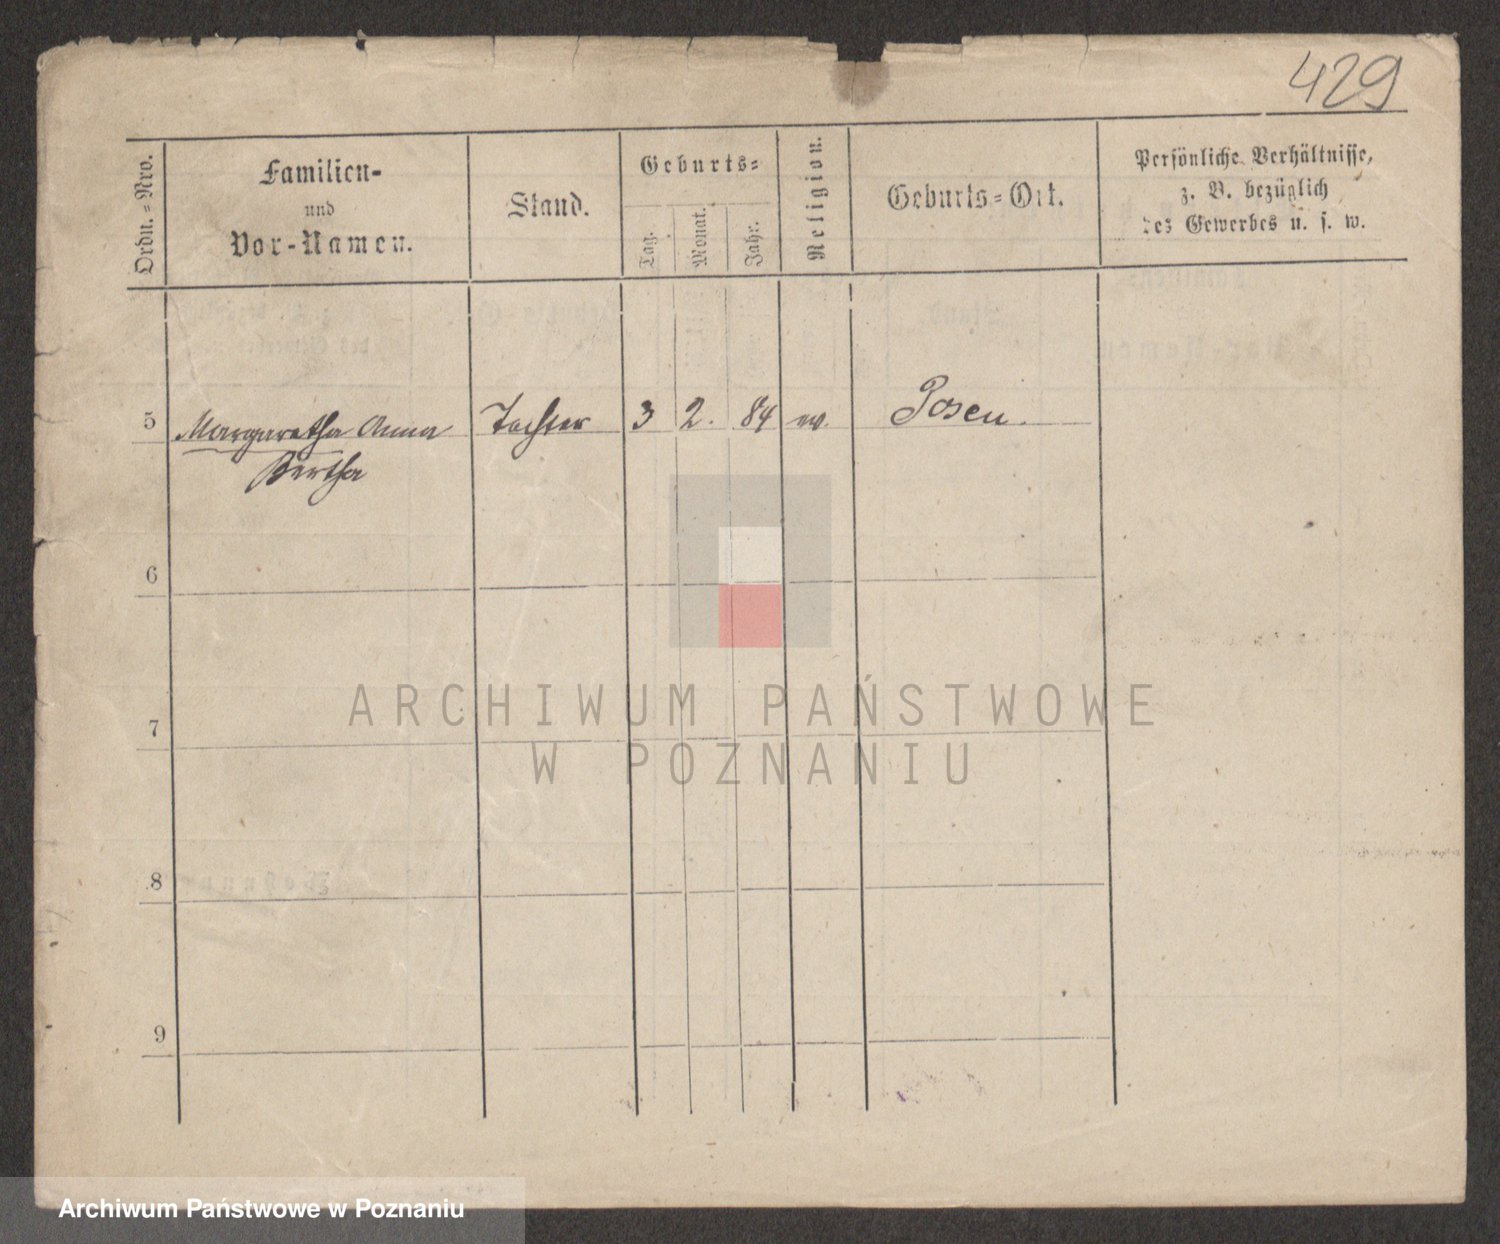 429
Ordn.=Nro.
Familien-
und
Vor-Namen.
Stand.
Geburts=
Tag.
Monat.
Jahr.
Religion.
Geburts=Ort.
Persönliche Verhältnisse,
z. B. bezüglich
des Gewerbes u. s. w.
5 Margaretha Anna Tochter 3 2. 84 ev. Posen.
Bertha
6
7
8
9
ARCHIWUM PAŃSTWOWE
W POZNANIU
Archiwum Państwowe w Poznaniu